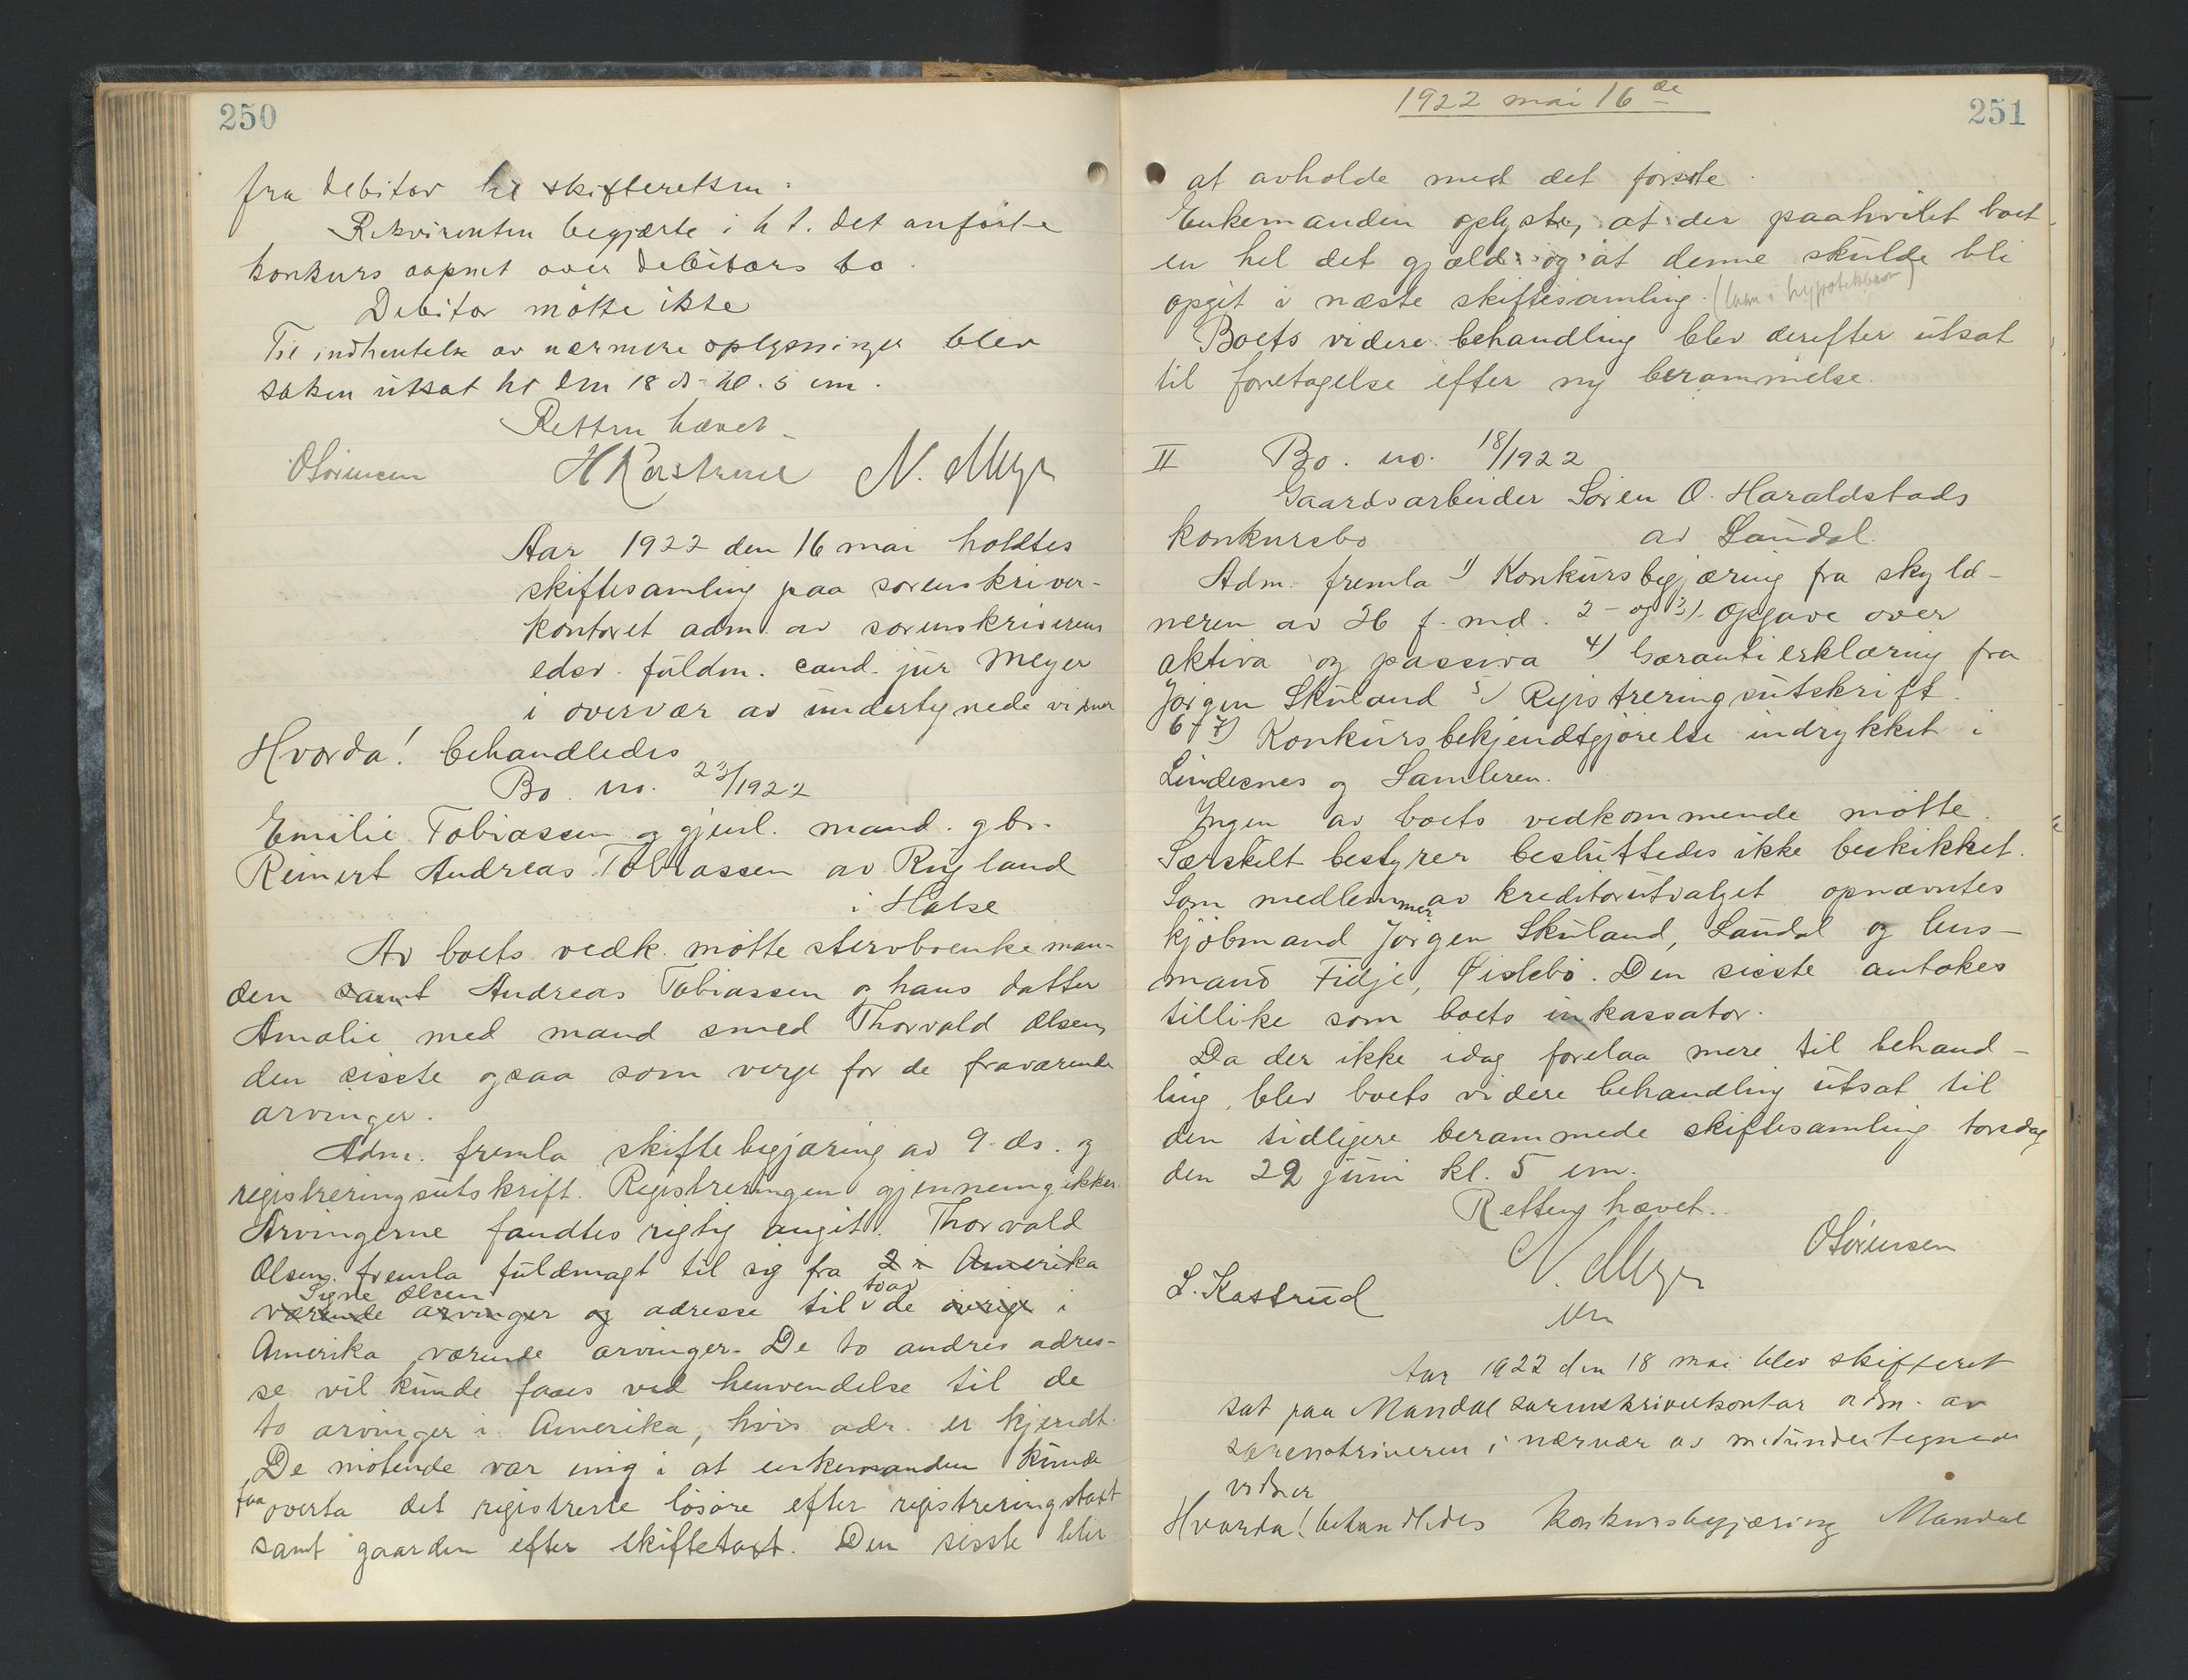 250
fra debitor til skifteretten.
Rekvirenten begjærte i h. t. det anførte
konkurs aapnet over debitors bo.
Debitor møtte ikke
Til indhentelse av nærmere oplysninger blev
saken utsat til den 18 ds. kl. 5 em.
Retten hævet.
OSørensen HKastrud N. Meyer
Aar 1922 den 16 mai holdtes
skiftesamling paa sorenskriver-
kontoret adm. av sorenskriverens
edsv. fuldm. cand. jur Meyer
i overvær av undertegnede vidner
Hvorda! behandledes
Bo. no. 23/1922
Emilie Tobiassen og gjenl. mand. gbr.
Reinert Andreas Tobiassen av Rugland
i Halse
Av boets vedk. møtte stervboenkeman-
den samt Andreas Tobiassen og hans datter
Amalie med mand smed Thorvald Olsen,
den sisste ogsaa som verge for de fraværende
arvinger.
Adm. fremla skiftebegjæring av 9 ds. og
registreringsutskrift. Registreringen gjennemgikkes.
Arvingerne fandtes rigtig angit. Thorvald
Olsen fremla fuldmagt til sig fra 2 i Amerika
Signe Olsen to av
værende arvinger og adresse til v de øvrige i
Amerika værende arvinger. De to andres adres-
se vil kunde faaes ved henvendelse til de
to arvinger i Amerika, hvis adr. er kjendt.
De møtende var enig i at enkemanden kunde
faa overta det registrerte løsøre efter registreringstaxt
samt gaarden efter skiftetaxt. Den sisste blir
1922 mai 16de
251
at avholde med det første.
Enkemanden oplyste, at der paahvilet boet
en hel del gjæld og at denne skulde bli
opgit i næste skiftesamling. (laan i hypotekbank)
Boets videre behandling blev derefter utsat
til foretagelse efter ny berammelse.
II Bo. no. 18/1922
Gaardsarbeider Søren O. Haraldstads
konkursbo av Laudal.
Adm. fremla 1) Konkursbegjæring fra skyld-
neren av 26 f. md. 2- og 3). Opgave over
aktiva og passiva 4) Garantierklæring fra
Jørgen Skuland 5) Registreringsutskrift.
6 & 7) Konkursbekjendtgjørelse indrykket i
Lindesnes og Samleren.
Ingen av boets vedkommende møtte.
Særskilt bestyrer besluttedes ikke beskikket.
Som medlemmer av kreditorutvalget opnævntes
kjøbmand Jørgen Skuland, Laudal og lens-
mand Fidje, Øislebø. Den sisste antokes
tillike som boets inkassator.
Da der ikke idag forelaa mere til behand-
ling, blev boets videre behandling utsat til
den tidligere berammede skiftesamling torsdag
den 29 juni kl. 5 em.
Retten hævet.
L. Kastrud N. Meyer OSørensen
Aar 1922 den 18 mai blev skifteret
sat paa Mandal sorenskriverkontor adm. av
sorenskriveren i nærvær av medundertegnede
vidner
Hvorda! behandledes konkursbegjæring Mandal